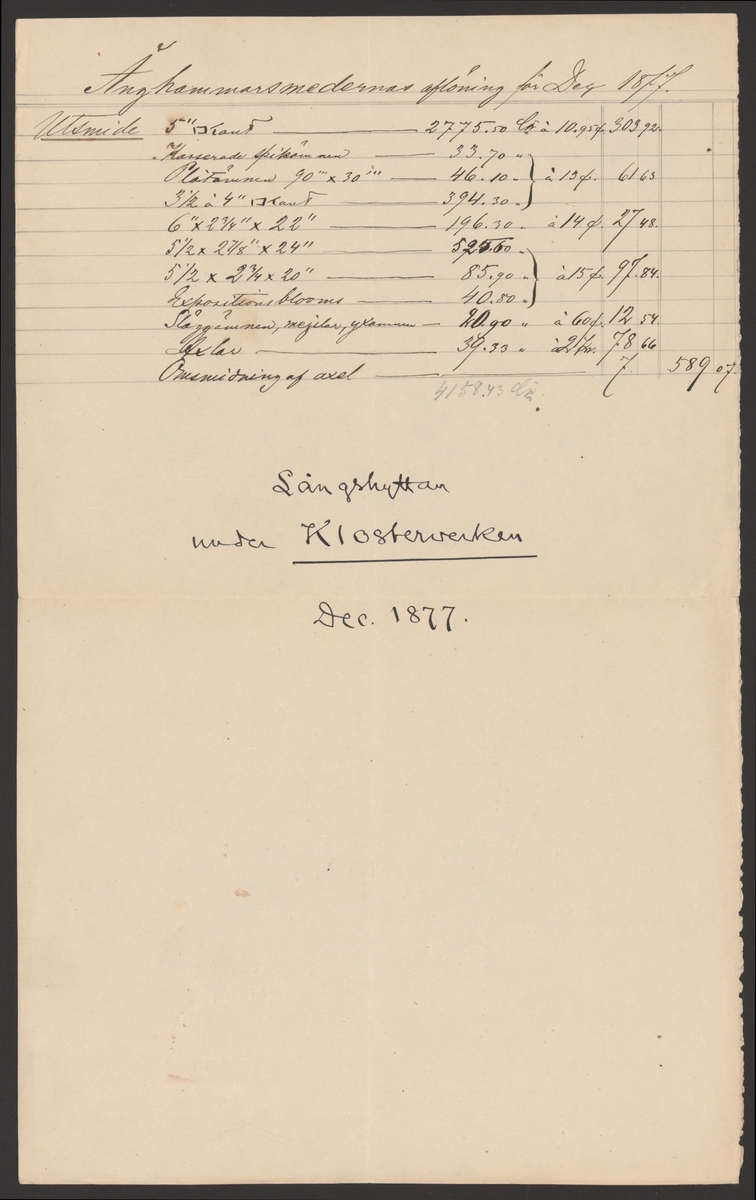 Ånghammarsmedernas aflöning för Dec 1877.
Utsmide 5" □kant — 2775.50 Ctr à 10.95 ö. 303 92.
Kasserade spikämnen — 33.70 "
Plåtämnen 90"' x 30"' — 46.10 " à 13 ö. 61 63
3 1/2 à 4" □kant — 394.30 "
6" x 2 3/4" x 22" — 196.30 " à 14 ö. 27 48.
5 1/2 x 2 7/8" x 24" — 525.60 "
5 1/2 x 2 3/4 x 20" — 85.90 " à 15 ö. 97.84.
Expositionsblooms — 40.80 "
mejslar, yxämnen — 20.90 " à 60 ö. 12 54.
Axlar — 39.33 " à 2 kr. 78 66
Omsmidning af axel — 7. 589 07.
4158.43 Ctr
Långshyttan
under Klosterverken
Dec. 1877.